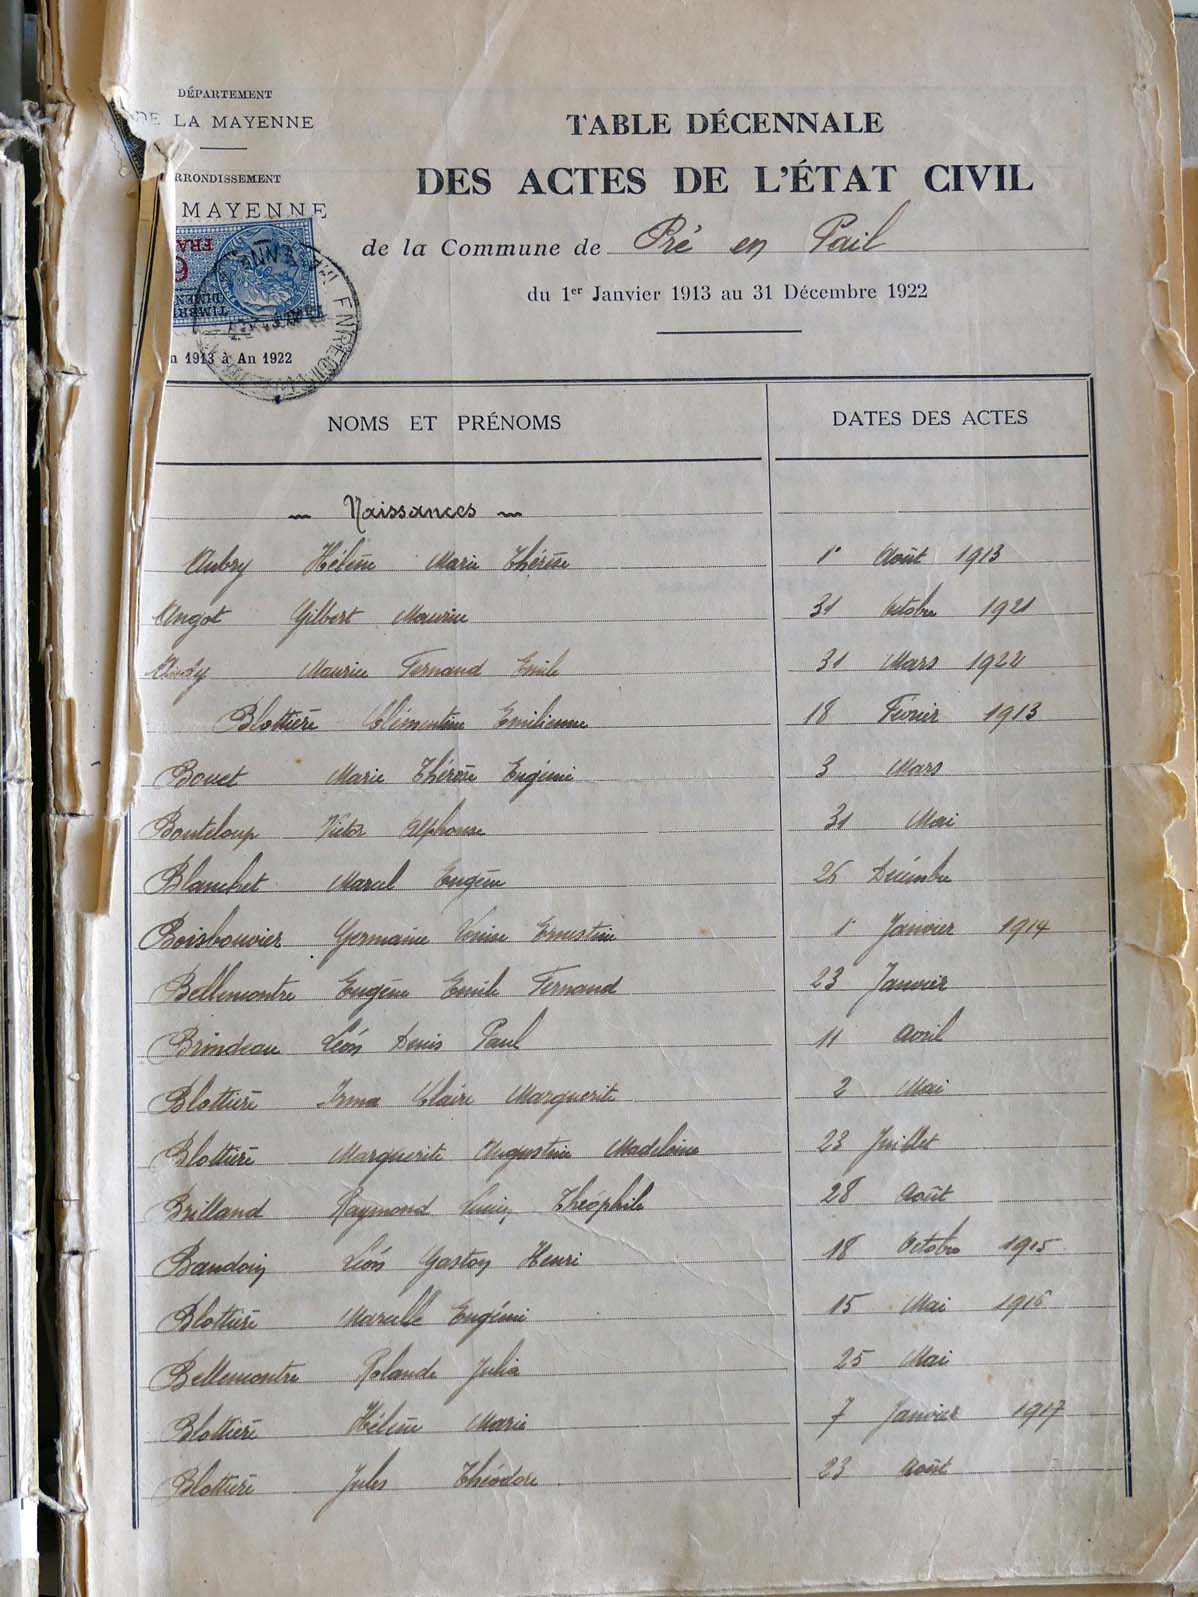 DÉPARTEMENT
DE LA MAYENNE
RRONDISSEMENT
MAYENNE
n 1913 à An 1922
TABLE DÉCENNALE
DES ACTES DE L'ÉTAT CIVIL
de la Commune de Pré en Pail
du 1er Janvier 1913 au 31 Décembre 1922
NOMS ET PRÉNOMS DATES DES ACTES
Naissances
Aubry Hélène Marie Thérèse 1er Août 1913
Angot Gilbert Maurice 31 Octobre 1921
Maurice Fernand Emile 31 Mars 1922
Blottière Clémentine Emilienne 18 Février 1913
Bouet Marie Thérèse Eugénie 3 Mars
Bouteloup Victor Alphonse 31 Mai
Blanchet Marcel Eugène 26 Décembre
Boisbouvier Germaine Ernestine 1er Janvier 1914
Bellemontre Eugène Emile Fernand 23 Janvier
Brindeau Léon Denis Paul 11 Avril
Blottière Irma Claire Marguerite 2 Mai
Blottière Marguerite Augustine Madeleine 23 Juillet
Brilland Raymond Théophile 28 Août
Baudoin Léon Gaston Henri 18 Octobre 1915
Blottière Marcelle Eugénie 15 Mai 1916
Bellemontre Rolande Julia 25 Mai
Blottière Hélène Marie 7 Janvier 1917
Blottière Jules Théodore 23 Août